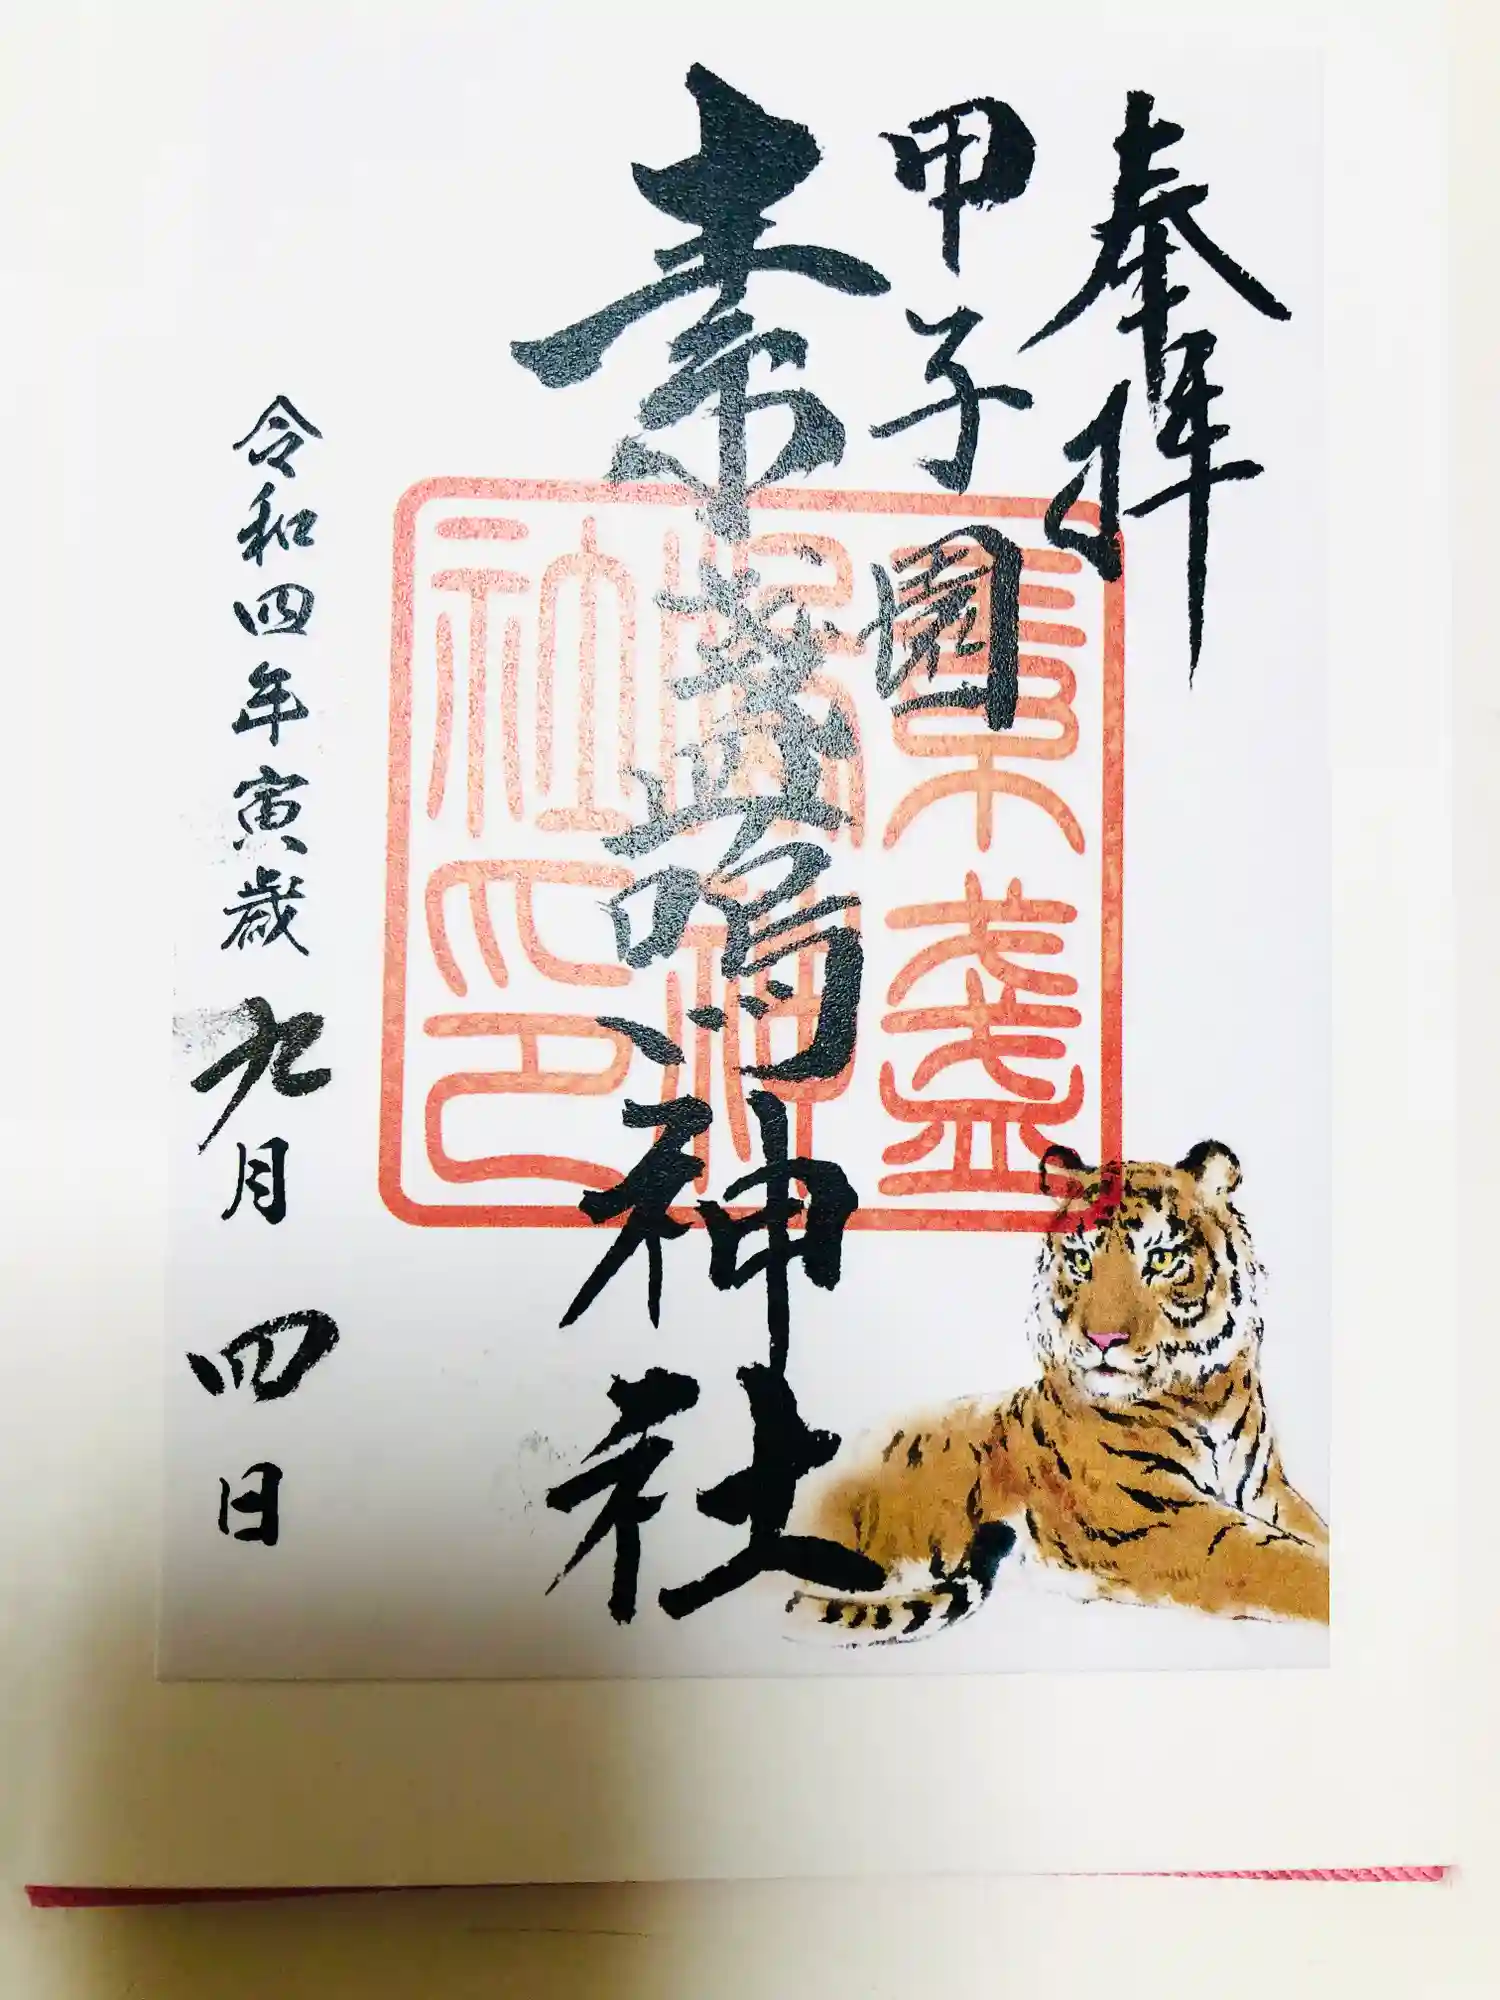 奉拝
甲子園
素盞嗚神社
令和四年寅歳九月四日
素盞
嗚神
社印